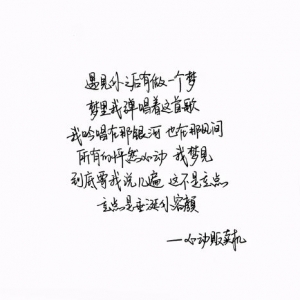 遇见你之后有做一个梦
梦里我弹唱着这首歌
我吟唱在那银河 也在那凡间
所有的怦然心动 我梦见
到底要我说几遍 这不是重点
重点是垂涎你容颜
——心动贩卖机